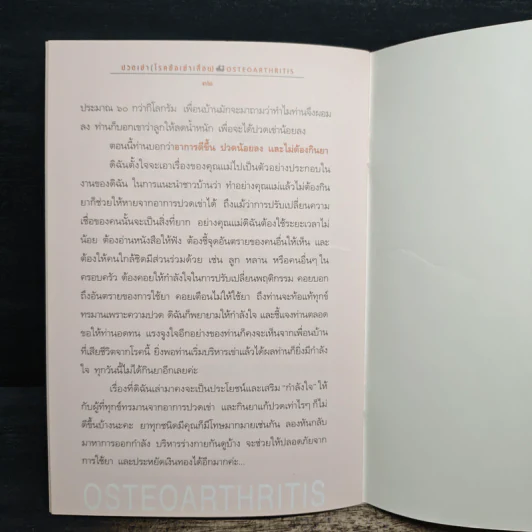 ปวดเข่า(โรคข้อเข่าเสื่อม) OSTEOARTHRITIS
ประมาณ ๖๐ กว่ากิโลกรัม เพื่อนบ้านมักจะมาถามว่าทำไมท่านจึงผอม
ลง ท่านก็บอกเขาว่าลูกให้ลดน้ำหนัก เพื่อจะได้ปวดเข่าน้อยลง
ตอนนี้ท่านบอกว่าอาการดีขึ้น ปวดน้อยลง และไม่ต้องกินยา
ดิฉันตั้งใจจะเอาเรื่องของคุณแม่ไปเป็นตัวอย่างประกอบใน
งานของดิฉัน ในการแนะนำชาวบ้านว่า ทำอย่างคุณแม่แล้วไม่ต้องกิน
ยาก็ช่วยให้หายจากอาการปวดเข่าได้ ถึงแม้ว่าการปรับเปลี่ยนความ
เชื่อของคนนั้นจะเป็นสิ่งที่ยาก อย่างคุณแม่ดิฉันต้องใช้ระยะเวลาไม่
น้อย ต้องอ่านหนังสือให้ฟัง ต้องชี้จุดอันตรายของคนอื่นให้เห็น และ
ต้องให้คนใกล้ชิดมีส่วนร่วมด้วย เช่น ลูก หลาน หรือคนอื่นๆ ใน
ครอบครัว ต้องคอยให้กำลังใจในการปรับเปลี่ยนพฤติกรรม คอยบอก
ถึงอันตรายของการใช้ยา คอยเตือนไม่ให้ใช้ยา ถึงท่านจะท้อแท้ทุกข์
ทรมานเพราะความปวด ดิฉันก็พยายามให้กำลังใจ และชี้แจงท่านตลอด
ขอให้ท่านอดทน แรงจูงใจอีกอย่างของท่านก็คงจะเห็นจากเพื่อนบ้าน
ที่เสียชีวิตจากโรคนี้ ยิ่งพอท่านเริ่มบริหารเข่าแล้วได้ผลท่านก็ยิ่งมีกำลัง
ใจ ทุกวันนี้ไม่ได้กินยาอีกเลยค่ะ
เรื่องที่ดิฉันเล่ามาคงจะเป็นประโยชน์และเสริม “กำลังใจ” ให้
กับผู้ที่ทุกข์ทรมานจากอาการปวดเข่า และกินยาแก้ปวดเท่าไรๆ ก็ไม่
ดีขึ้นบ้างนะคะ ยาทุกชนิดมีคุณก็มีโทษมากมายเช่นกัน ลองหันกลับ
มาหาการออกกำลัง บริหารร่างกายกันดูบ้าง จะช่วยให้ปลอดภัยจาก
การใช้ยา และประหยัดเงินทองได้อีกมากค่ะ...
OSTEOARTHRITIS